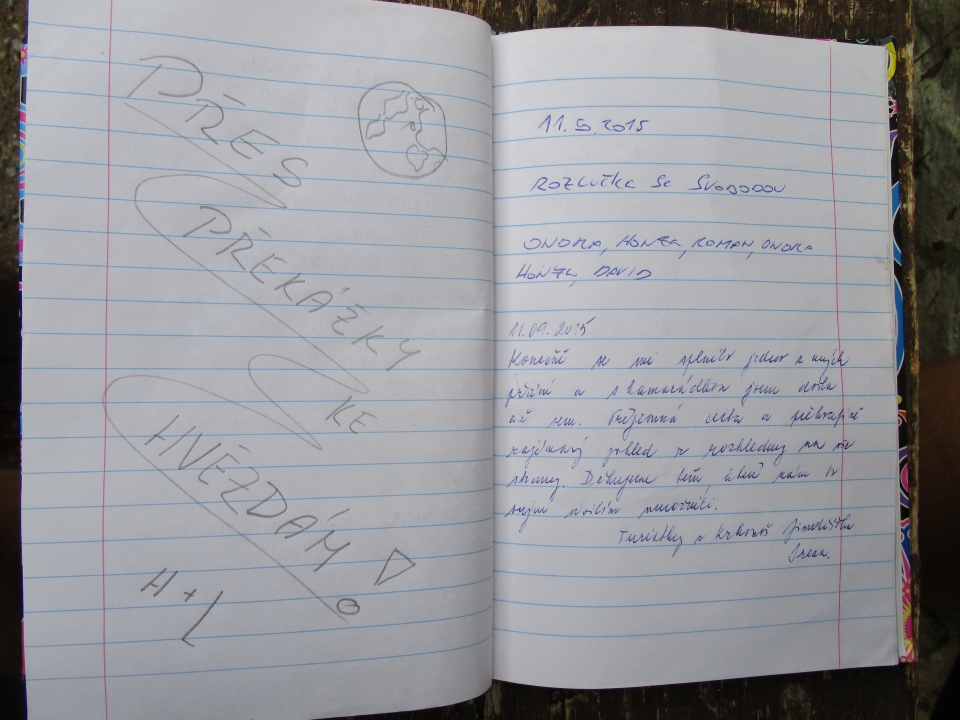 PŘES
PŘEKÁŽKY
KE
HVĚZDÁM
H + L
11.9.2015
ROZLUČKA SE SVOBODOU
ONDRA, HONZA, ROMAN, ONDRA
HONZA, DAVID
11.09.2015
Konečně se mi splnilo jedno z mých
přání a s kamarádkou jsem došla
až sem. Příjemná cesta a překvapivě
zajímavý pohled z rozhledny na vše
strany. Děkujeme těm, kteří nám to
svým úsilím umožnili.
Turistky z Krkonoš
Irena.